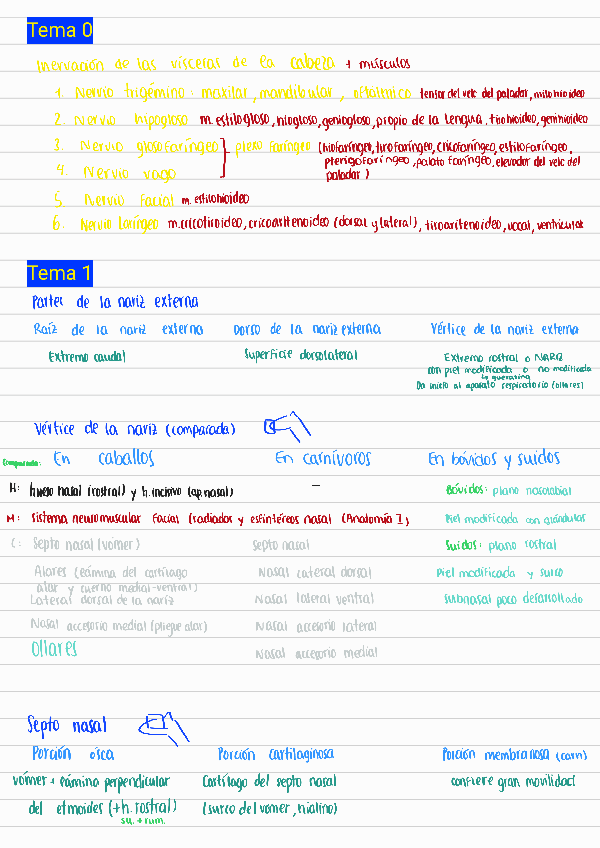 Tema 0
Inervación de las vísceras de la cabeza + músculos
1. Nervio trigémino: maxilar, mandibular, oftálmico tensor del velo del paladar, milohioideo
2. Nervio hipogloso m. estilogloso, hiogloso, geniogloso, propio de la lengua, tirohioideo, genihioideo
3. Nervio glosofaríngeo plexo faríngeo (hiofaríngeo, tirofaríngeo, cricofaríngeo, estilofaríngeo,
4. Nervio vago pterigofaríngeo, palatofaríngeo, elevador del velo del
paladar)
5. Nervio Facial m. estilohioideo
6. Nervio Laríngeo m. cricotiroideo, cricoaritenoideo (dorsal y lateral), tiroaritenoideo, vocal, ventricular
Tema 1
Partes de la nariz externa
Raíz de la nariz externa Dorso de la nariz externa Vértice de la nariz externa
Extremo caudal Superficie dorsolateral Extremo rostral o NARIZ
con piel modificada o no modificada
Da inicio al aparato respiratorio (ollares)
Vértice de la nariz (comparada)
Comparada: En caballos En carnívoros En bóvidos y suidos
H: hueso nasal (rostral) y h. incisivo (ap. nasal) — Bóvidos: plano nasolabial
M: sistema neuromuscular facial (radiados y esfintéreos nasal (Anatomía I) Piel modificada con glándulas
C: Septo nasal (vómer) Septo nasal Suidos: plano rostral
Alares (lámina del cartílago Nasal lateral dorsal Piel modificada y surco
alar y cuerno medial-ventral)
Lateral dorsal de la nariz Nasal lateral ventral subnasal poco desarrollado
Nasal accesorio medial (pliegue alar) Nasal accesorio lateral
Ollares Nasal accesorio medial
Septo nasal
Porción ósea Porción cartilaginosa Porción membranosa (carn)
vómer + lámina perpendicular Cartílago del septo nasal confiere gran movilidad
del etmoides (+h. rostral) (surco del vomer, hialino)
su. + rum.